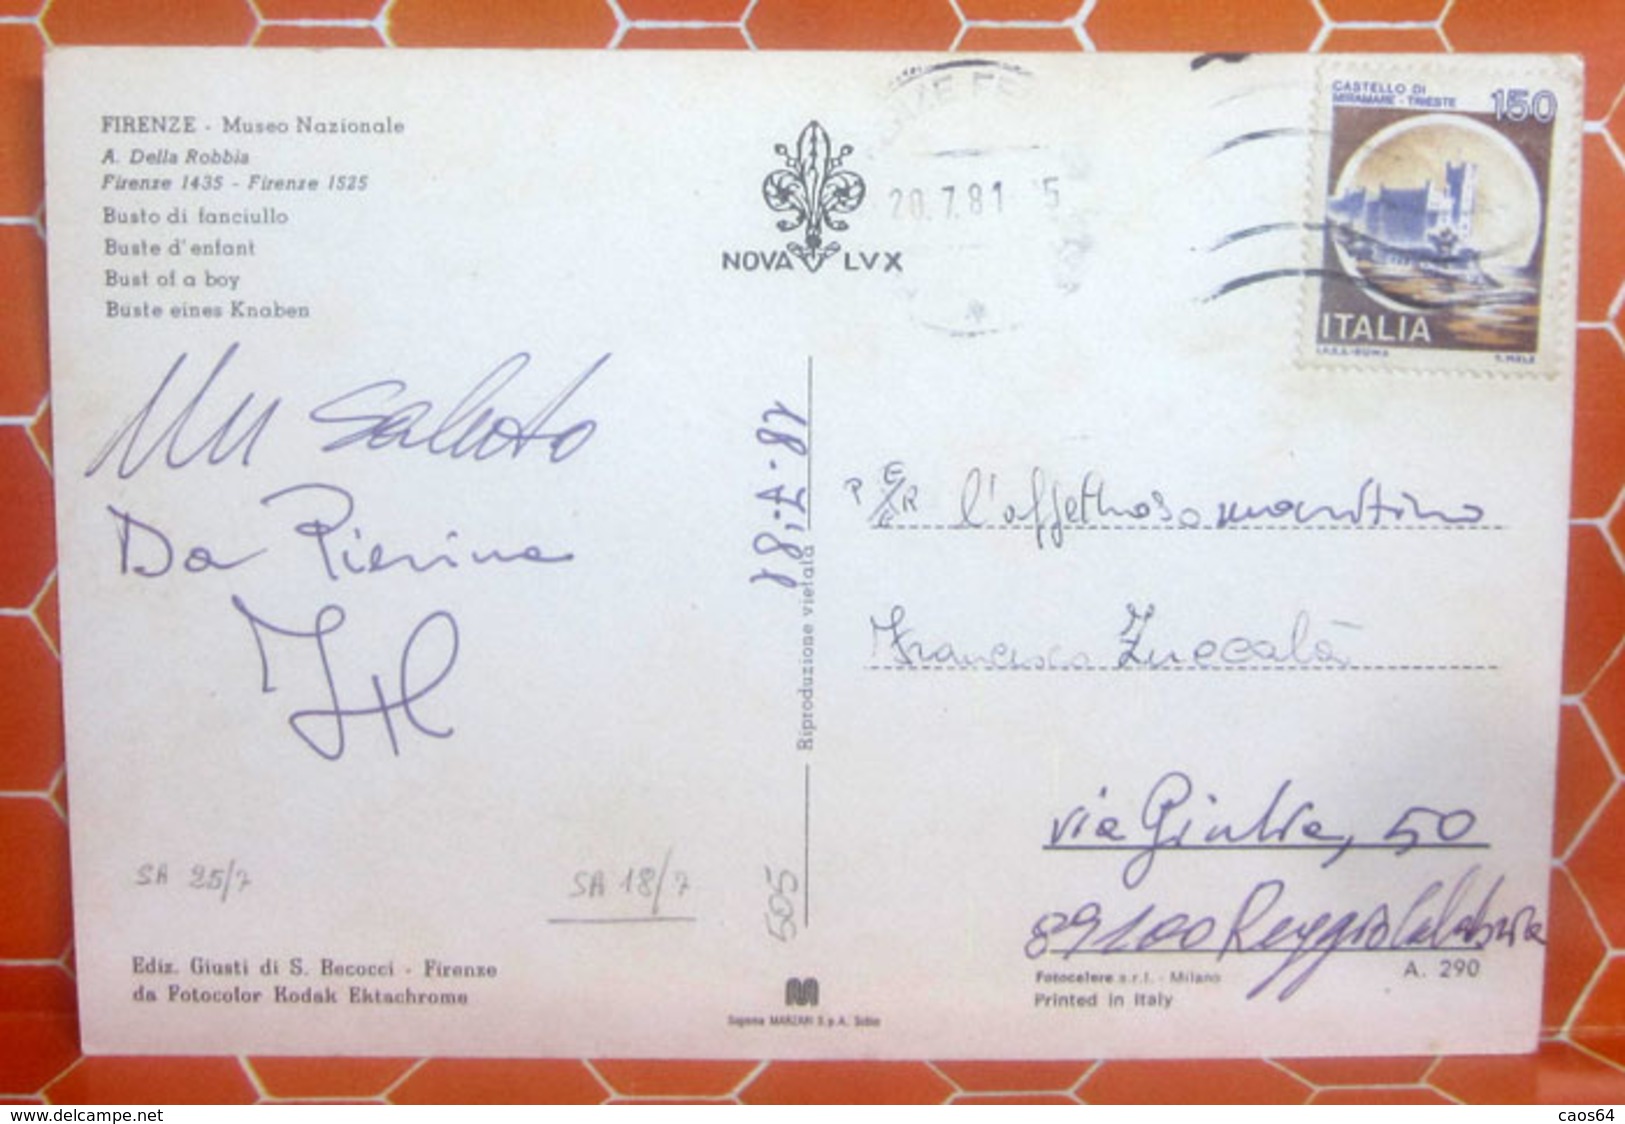 FIRENZE - Museo Nazionale
A. Della Robbia
Firenze 1435 - Firenze 1525
Busto di fanciullo
Buste d'enfant
Bust of a boy
Buste eines Knaben
Un saluto
Da Pierina
SA 25/7
SA 18/7
Ediz. Giusti di S. Becocci - Firenze
da Fotocolor Kodak Ektachrome
NOVA LVX
20.7.81
18.7.81
Riproduzione vietata
505
M
Saprema MARZARI S.p.A. Schio
CASTELLO DI
MIRAMARE - TRIESTE
150
ITALIA
I.P.Z.S. - ROMA
E. MELE
PER l'affettuoso maritino
Francesco Zuccalà
via Giulia, 50
89100 Reggio Calabria
A. 290
Fotocelere s.r.l. - Milano
Printed in Italy
www.delcampe.net
caos64